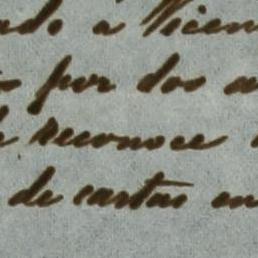 ado a Vicen
por dos a
reconoce
de cartas en